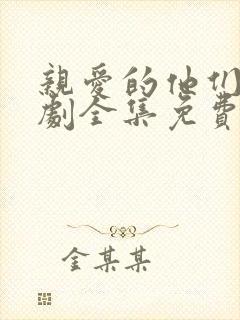 親愛的他们
劇全集免費
金某某